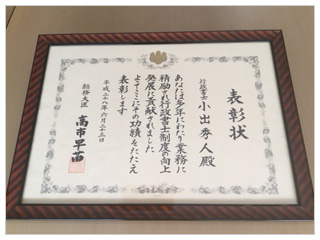 表彰状
行政書士 小出秀人殿
あなたは多年にわたり業務に
精励され行政書士制度の向上
発展に貢献されました
よってここにその功績をたたえ
表彰します
平成二十八年六月二十三日
総務大臣 高市早苗